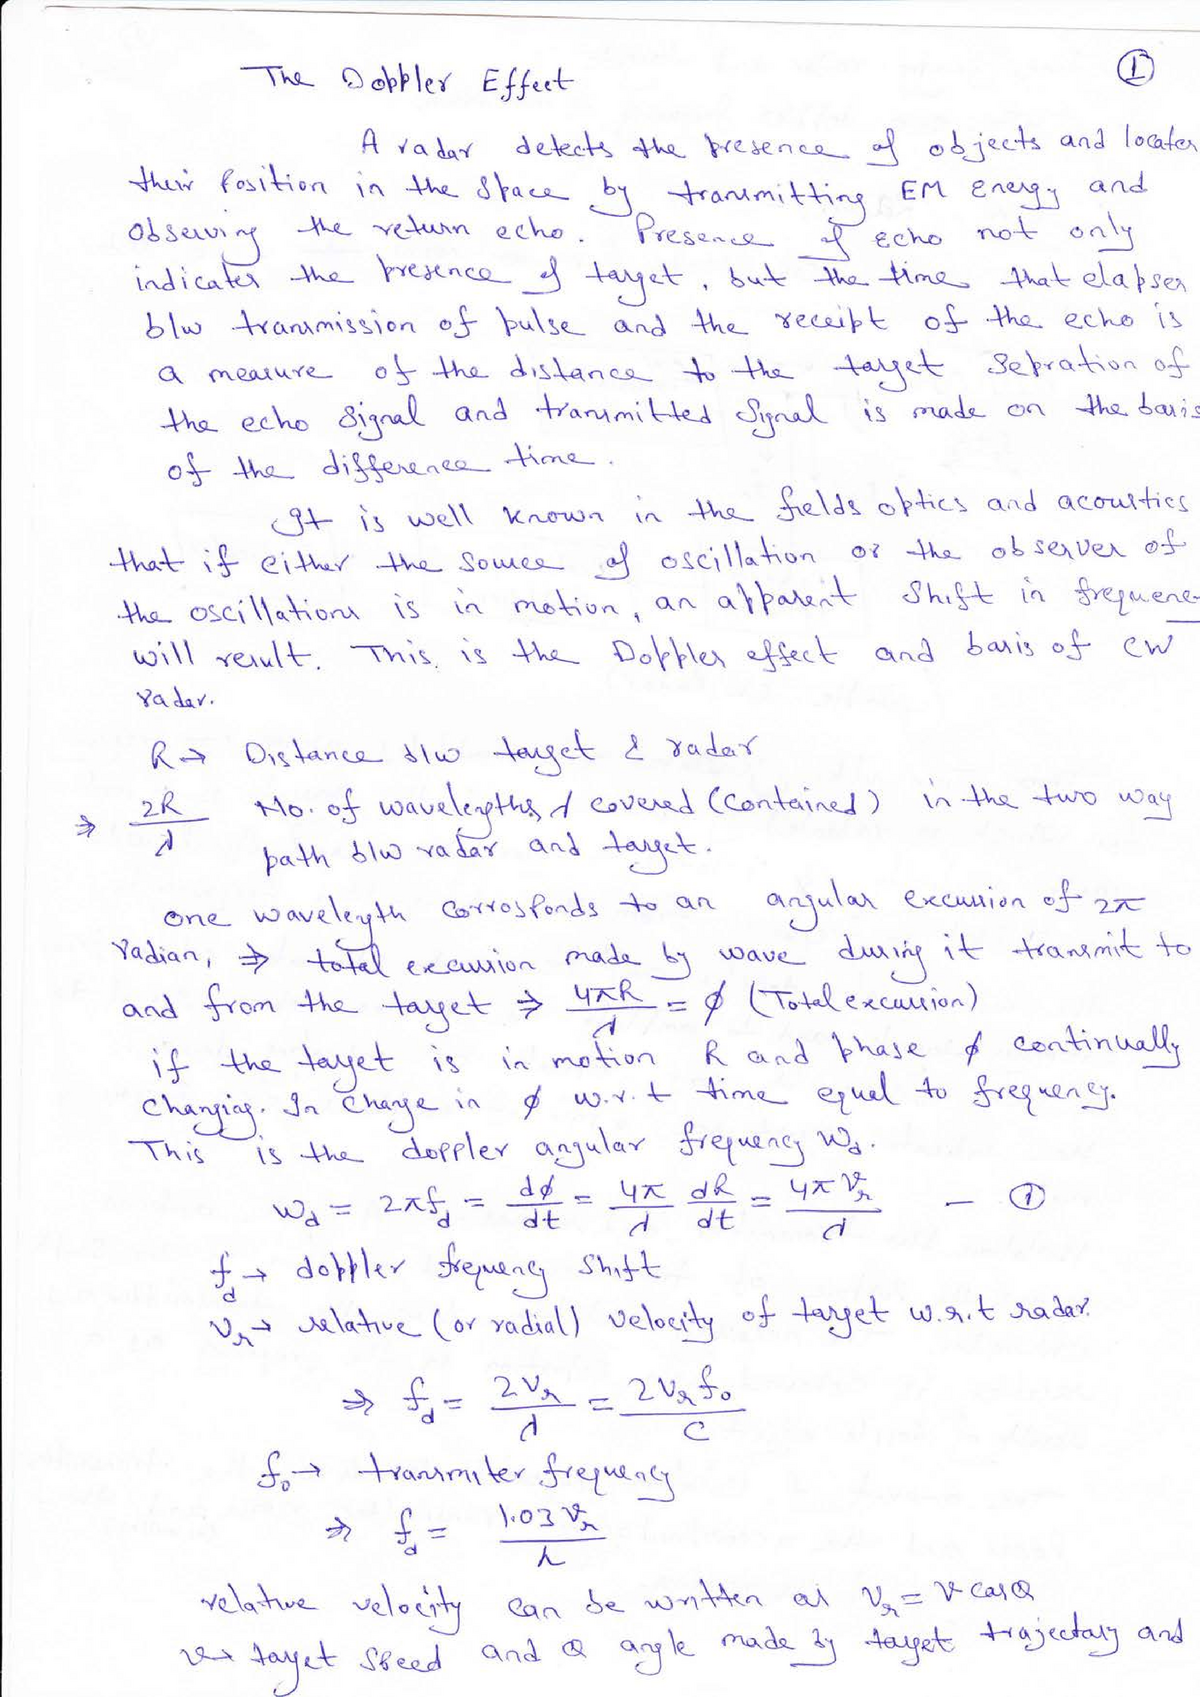 The Doppler Effect
①
A radar detects the presence of objects and locates
their Position in the Space by transmitting EM Energy and
Observing the return echo. Presence of Echo not only
indicates the presence of target, but the time that elapses
b/w transmission of pulse and the receipt of the echo is
a measure of the distance to the target Sepration of
the echo Signal and transmitted Signal is made on the basis
of the difference time.
It is well known in the fields optics and acoustics
that if either the Source of oscillation or the observer of
the oscillations is in motion, an apparent Shift in frequenc
will result. This is the Doppler effect and basis of CW
radar.
R → Distance b/w target & radar
⇒ 2R/λ No. of wavelengths λ covered (Contained) in the two way
path b/w radar and target.
One wavelength Corrosponds to an angular excursion of 2π
Radian, ⇒ total excursion made by wave during it transmit to
and from the target ⇒ 4πR/λ = φ (Total excursion)
if the target is in motion R and phase φ continually
Changing. In Change in φ w.r.t time equal to frequency.
This is the doppler angular frequency Wd.
Wd = 2πfd = dφ/dt = 4π/λ dR/dt = 4πVr/λ — ①
fd → doppler frequency Shift
Vr → relative (or radial) Velocity of target w.r.t radar.
⇒ fd = 2Vr/λ = 2Vrfo/C
fo → transmiter frequency
⇒ fd = 1.03Vr/λ
relative velocity can be written as Vr = V cosθ
V → target Speed and θ angle made by target trajectary and